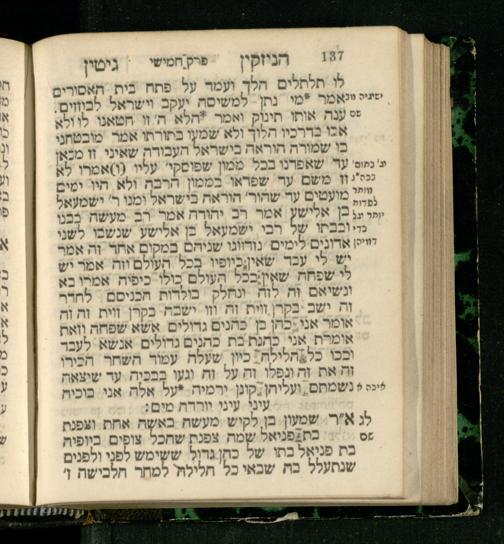 137 הניזקין פרק חמישי גיטין
לו תלתלים הלך ועמד על פתח בית האסורים
ישעיה מב אמר *מי נתן למשיסה יעקב וישראל לבוזזים.
שם ענה אותו תינוק ואמר *הלא ה' זו חטאנו לו ולא
אבו בדרכיו הלוך ולא שמעו בתורתו אמר מובטחני
בו שמורה הוראה בישראל העבודה שאיני זז מכאן
עד שאפדנו בכל ממון שפוסקי' עליו (ו) אמרו לא
זז משם עד שפדאו בממון הרבה ולא היו ימים
מועטים עד שהור' הוראה בישראל ומנו ר' ישמעאל
בן אלישע אמר רב יהודה אמר רב מעשה בבנו
ובבתו של רבי ישמעאל בן אלישע שנשבו לשני
אדונים לימים נזדווגו שניהם במקום אחד זה אמר
יש לי עבד שאין כיופיו בכל העולם וזה אמר יש
לי שפחה שאין בכל העולם כולו כיפיה אמרו בא
ונשיאם זה לזה ונחלק בולדות הכניסם לחדר
זה ישב בקרן זוית זה וזו ישבה בקרן זוית זה זה
אומר אני כהן בן כהנים גדולים אשא שפחה וזאת
אומרת אני כהנת בת כהנים גדולים אנשא לעבד
ובכו כל הלילה כיון שעלה עמוד השחר הכירו
זה את זה ונפלו זה על זה וגעו בבכיה עד שיצאה
איכה א נשמתם ועליהן קונן ירמיה *על אלה אני בוכיה
עיני עיני יורדה מים:
לג א"ר שמעון בן לקיש מעשה באשה אחת וצפנת
שם בת פניאל שמה צפנת שהכל צופים ביופיה
בת פניאל בתו של כהן גדול ששימש לפני ולפנים
שנתעלל בה שבאי כל הלילה למחר הלבישה ז'